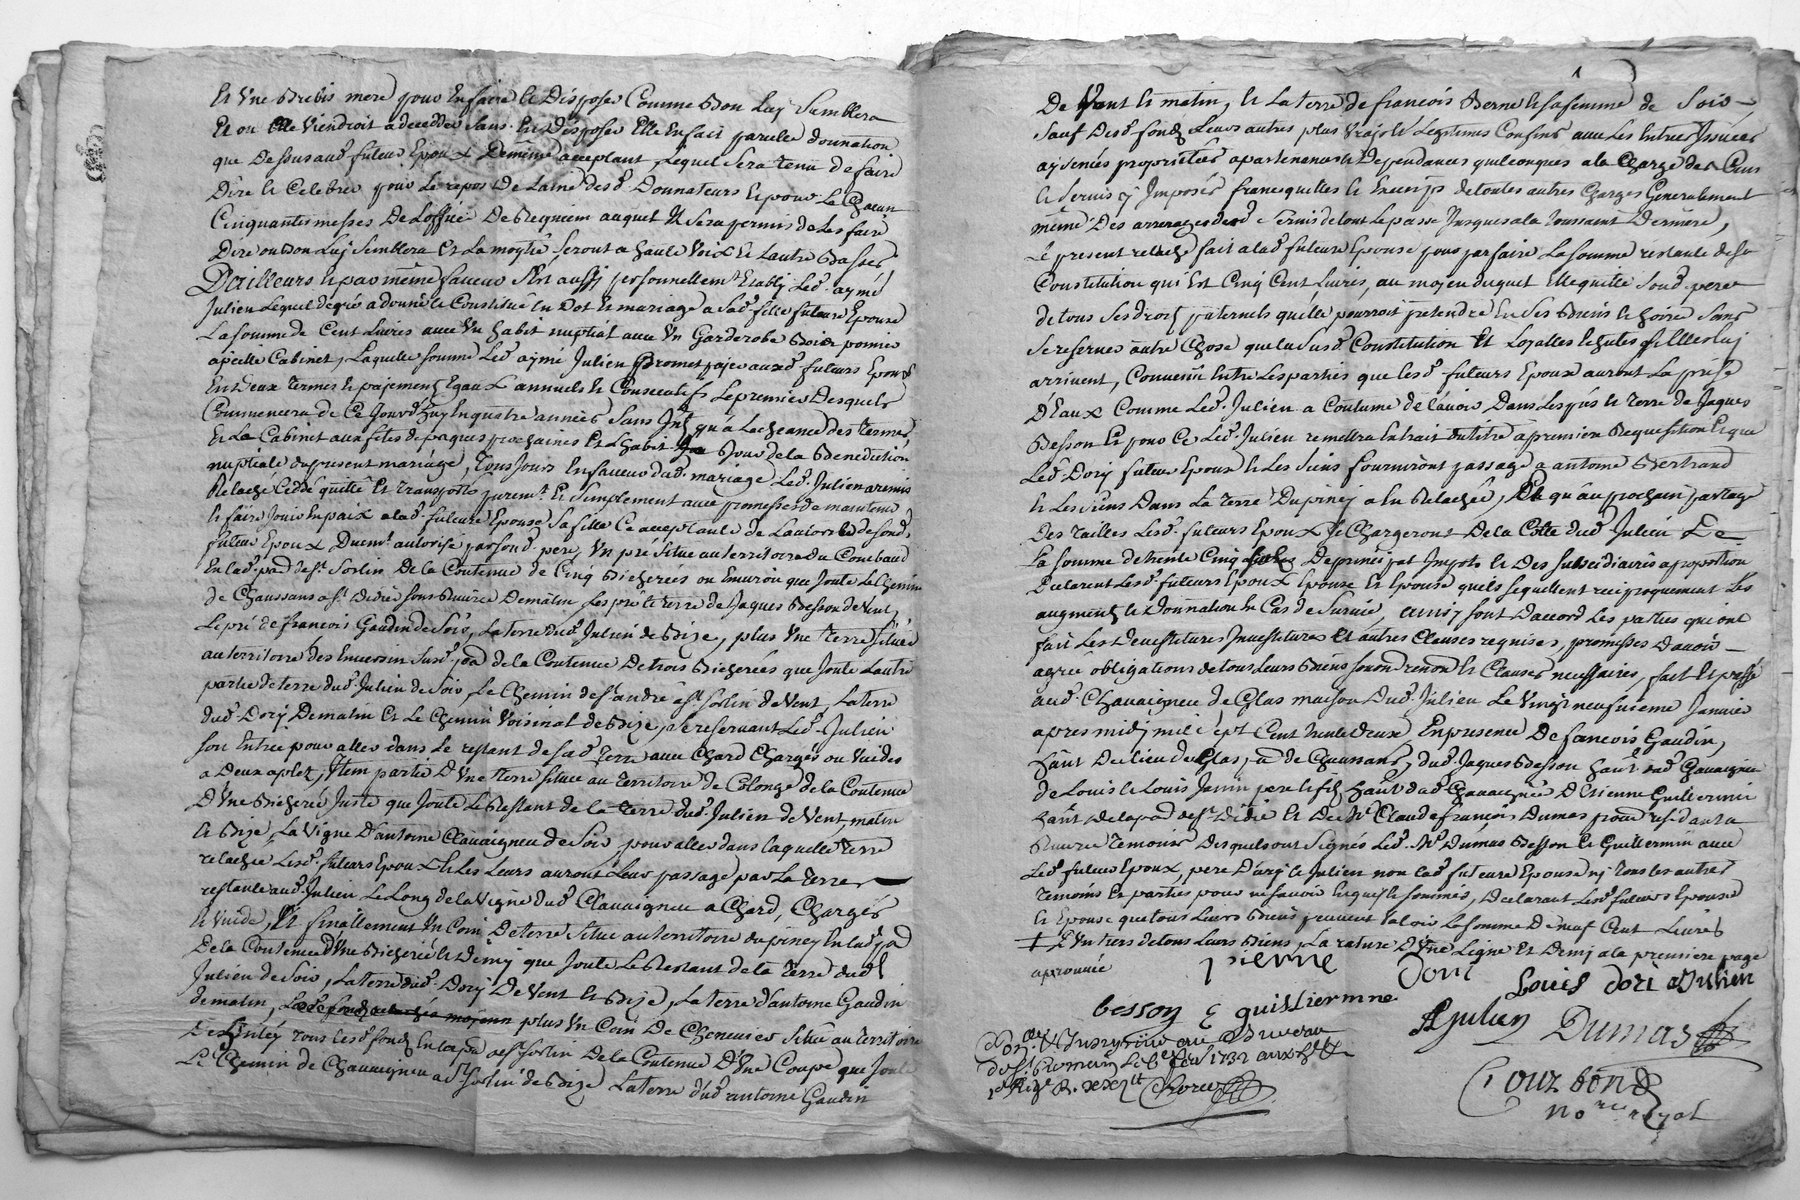 Et Une Brebis mere pour En faire Et Disposer Comme Bon Luy Semblera
Et ou Elle Viendroit a deceder Sans En Disposer Elle En fait pareille donnation
que Dessus aud. futeur Epoux Demême acceptant Lequel Sera tenu de faire
Dire Et Celebrer pour Le repos De Lame desd. Donnateurs Et pour Chacun
Cinquante messes De Loffice De Requiem auquel Il Sera permis de Les faire
Dire ou Bon Luy Semblera Et La moytié Seront a haute Voix Et Lautre Basses
D'ailleurs Et par même faveur S'est aussy personnellemt. Etably Led. aymé
Julien Lequel de gré a donné Et Constitué En Dot Et mariage a Sad. fille future Epouse
La somme de Cent Livres avec Un habit nuptial avec Un Garderobe Bois
apellé Cabinet, Laquelle somme Led. aymé Julien Promet payer auxd. futeurs Epoux
En deux termes Et payements Egaux annuels Et Consecutifs Le premier Desquels
Commencera de Ce Jourd'huy En quatre années Sans Jnt. qu'a Lecheance des termes
Et Le Cabinet aux fetes de paques prochaines Et Lhabit Jour de la Benediction
nuptiale du present mariage, Tous Jours En faveur dud. mariage Led. Julien a remis
Relaché Cedé quitté Et transporté puremt. Et Simplement avec promesses de maintenir
Et faire Jouir En paix a Lad. future Epouse Sa fille Ce acceptante de Lautorité de Sond.
futeur Epoux Duemt. autorisé par Sond. pere, Un pré Situé au territoire du Combaud
En Lad. par. de St. Sorlin De la Contenue de Cinq Bicherées ou Environ que Joute Le Chemin
de Chaussans a St. Didié Sous Riverie De matin Les pré Et terre de Jaques Besson de Vent,
Le pré de francois Gaudin de Soir, La terre dud. Julien de Bize, plus Une terre Située
au territoire des Enversin Susd. par. de la Contenue De trois Bicherées que Joute Lautre
partie de terre dud. Julien de Soir Le Chemin de St. andré a St. Sorlin de Vent, La terre
dud. Dory De matin Et Le Chemin Voisinal de Bize, Se reservant Led. Julien
Son Entrée pour aller dans Le restant de Sad. Terre avec Chard Chargés ou Vuides
a Deux, Item partie D'Une terre Située au territoire de Colonge de la Contenue
D'Une Bicherée Juste que Joute Le Restant de la terre dud. Julien de Vent, matin
Et Bize, La Vigne D'antoine Chavaigneu de Soir, pour aller dans laquelle terre
relachée Lesd. futeurs Epoux Et Les Leurs auront Leur passage par La terre
restante aud. Julien Le Long de la Vigne dud. Chavaigneu a Chard, Chargés
Et Vuide, Et finallement Un Coin De terre Situé au territoire du piney En Lad. par.
De la Contenue D'Une Bicherée Et Demy que Joute Le Restant de la terre dud.
Julien de Soir, La terre dud. Dory De Vent Et Bize, La terre d'antoine Gaudin
de matin, plus Un Coin De Cheneviere Situé au territoire
tous Lesd. fonds En Lad. par. de St. Sorlin De la Contenue D'Une Coupe que Joute
Le Chemin de Chavaigneu a St. Sorlin de Bize La terre dud. antoine Gaudin
De Vent Et matin, Et La terre de francois Berne Et Sa femme de Soir
Sauf Desd. fonds Leurs autres plus Vrais Et Legitimes Confins avec Les Entrées Issues
aysences proprietées apartenences Et Dependances quelconques a la Charge des Cens
Et Servis y Imposés franc quittes Et Exempts de toutes autres Charges Generalement
même Des arrerages desd. Servis de tout Le passé Jusques a la toussaint Derniere,
Le present relaché fait a lad. future Epouse pour parfaire La somme restante de Sa
Constitution qui Est Cinq Cent Livres, au moyen duquel Elle quitte Sond. pere
de tous Ses droits paternels quelle pourroit pretendre En Ses Biens Et hoirie Sans
Se reserver autre Chose que la Susd. Constitution Et Loyalles Echutes Si Elles Luy
arrivent, Convenu Entre Les parties que Lesd. futeurs Epoux auront La prise
D'Eaux Comme Led. Julien a Coutume de l'avoir Dans Les prés Et terre de Jaques
Besson Et pour Ce Led. Julien remettra Extrait du titre a premiere Requisition Et que
Led. Dory futeur Epoux Et Les Siens fourniront passage a antoine Bertrand
Et Les Siens Dans La terre Du piney a Eux Relachée, Et qu'au prochain partage
Des tailles Lesd. futeurs Epoux Se Chargeront De la Cotte dud. Julien De
La somme de trente Cinq De principal Impots Et Des Subsidiaires a proportion
Declarent Lesd. futeurs Epoux Epouse Et Epouse quils Segallent reciproquement Les
augments Et Donnation En Cas de Survie, ainsy Sont Daccord Les parties qui ont
fait Les Devestitures Investitures Et autres Clauses requises, promesses D'avoir
agreé obligations de tous Leurs Biens Soumon. renon. Et Clauses necessaires, fait Et passé
aud. Chavaigneu de Glas maison Dud. Julien Le Vingt neufvieme Janvier
apres midy mil Sept Cent trente deux En presence De francois Gaudin,
hant. Du lieu du Glas p. de Chaussans, dud. Jaques Besson hant. aud. Chavaigneu
de Louis Et Louis Janin pere Et fils hant. aud. Chavaigneu D'Etienne Guillermin
hant. de la par. de St. Didié Et De Mr. Claude francois Dumas resident a
Riverie temoins Desquels ont Signés Led. Mr. Dumas Besson Et Guillermin avec
Led. futeur Epoux, pere Dory Et Julien non Lad. future Epouse ny tous les autres
temoins Et parties pour ne Savoir Enquis Et Sommés, Declarant Lesd. futeurs Epoux
Et Epouse que tous Leurs Biens peuvent Valoir La Somme De neuf Cent Livres
+ Et Un tiers de tous Leurs Biens, La rature D'Une Ligne Et Demy a la premiere page
aprouvée
pierre Dori
Louis dori a Julien
besson E guillermne
A Julien Dumas
1732
Courbon
no.re royal